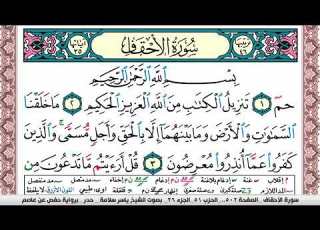 سُورَةُ الأَحْقَافِ
بِسْمِ اللَّهِ الرَّحْمَٰنِ الرَّحِيمِ
حمٓ ١ تَنزِيلُ الْكِتَٰبِ مِنَ اللَّهِ الْعَزِيزِ الْحَكِيمِ ٢ مَا خَلَقْنَا
السَّمَٰوَٰتِ وَالْأَرْضَ وَمَا بَيْنَهُمَآ إِلَّا بِالْحَقِّ وَأَجَلٍ مُّسَمًّى ۚ وَالَّذِينَ
كَفَرُوا عَمَّآ أُنذِرُوا مُعْرِضُونَ ٣ قُلْ أَرَءَيْتُم مَّا تَدْعُونَ مِن
سورة الأحقاف الصفحة ٥٠٢ الحزب ٥١ الجزء ٢٦ بصوت الشيخ ياسر سلامة حدر برواية حفص عن عاصم